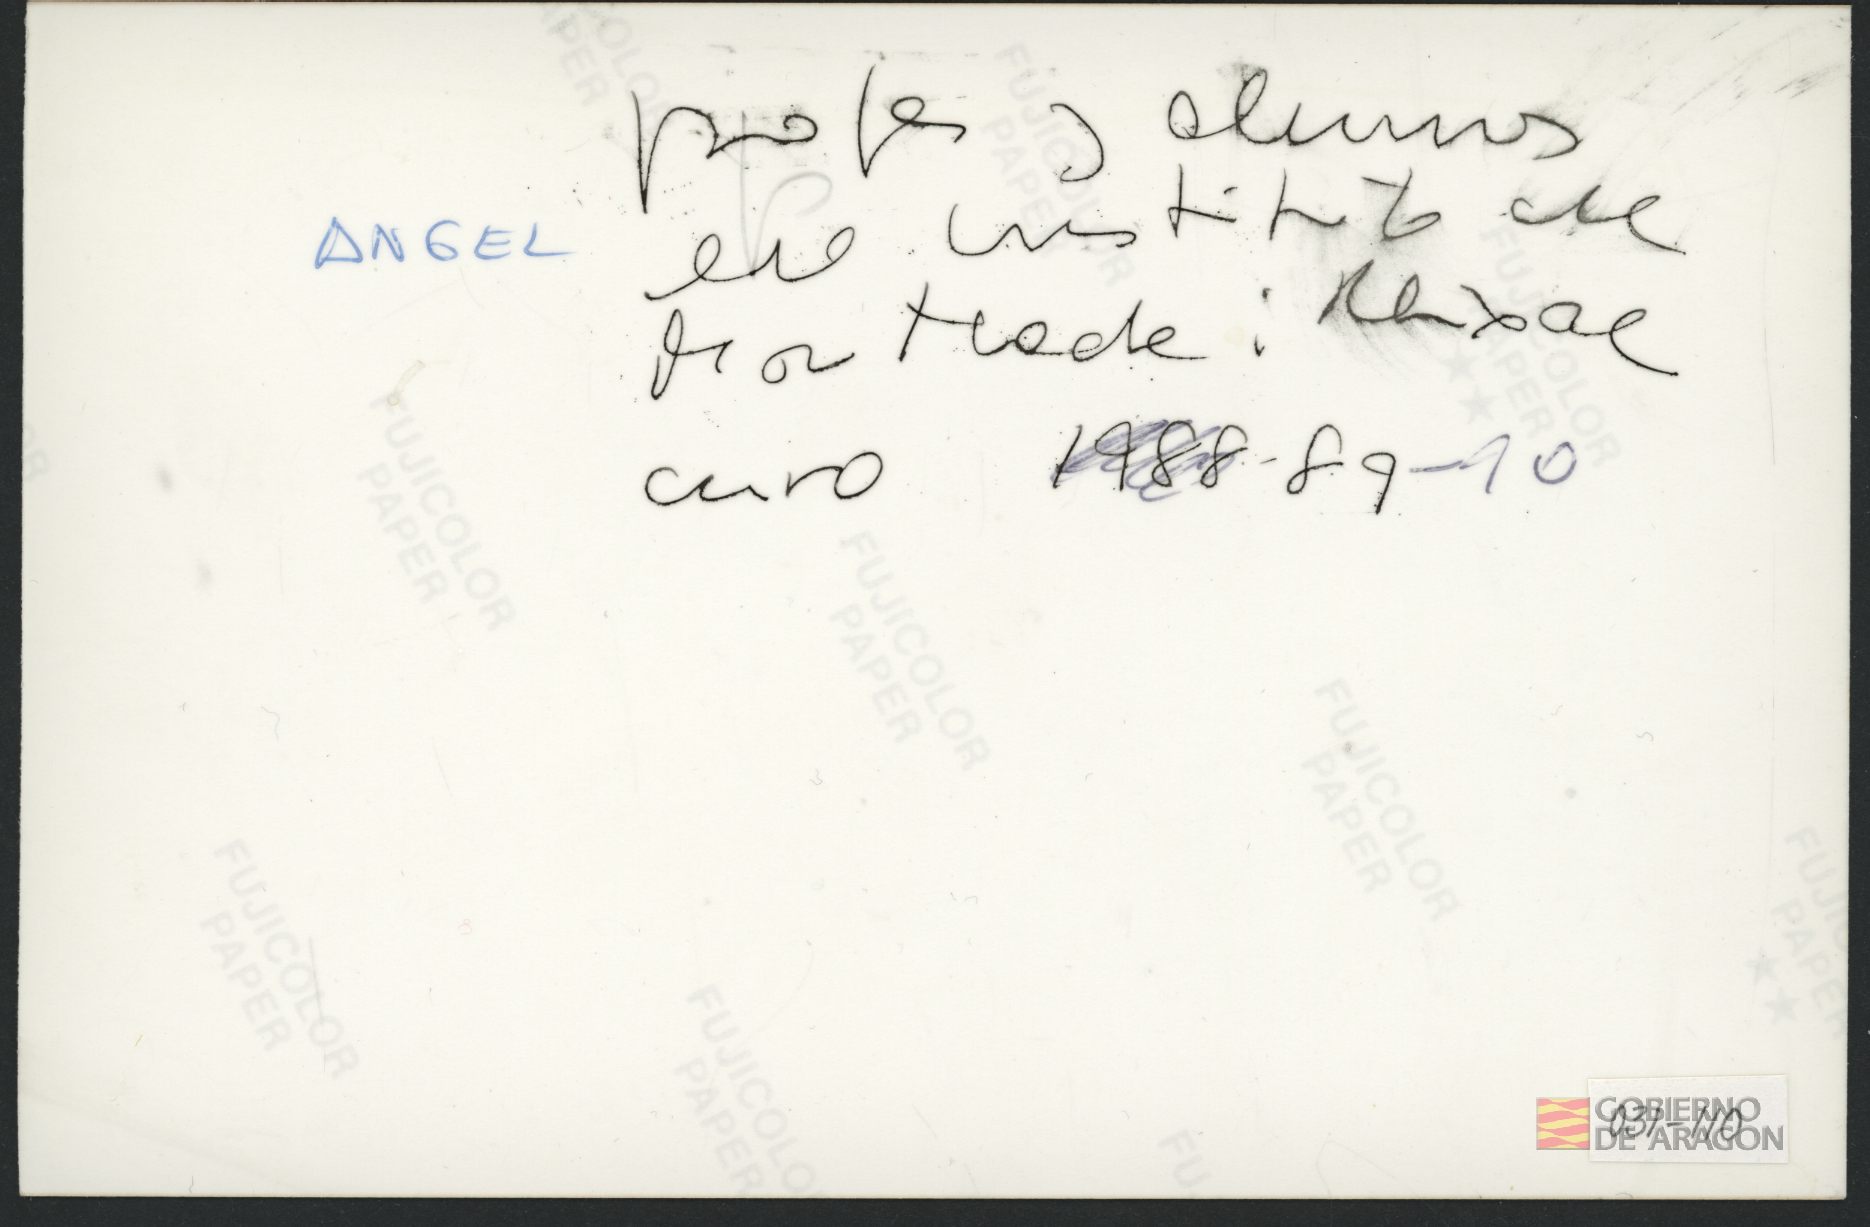 profes y alumnos
ANGEL
del instituto de
curso 1988-89-90
FUJICOLOR
PAPER
GOBIERNO
DE ARAGON
031-110